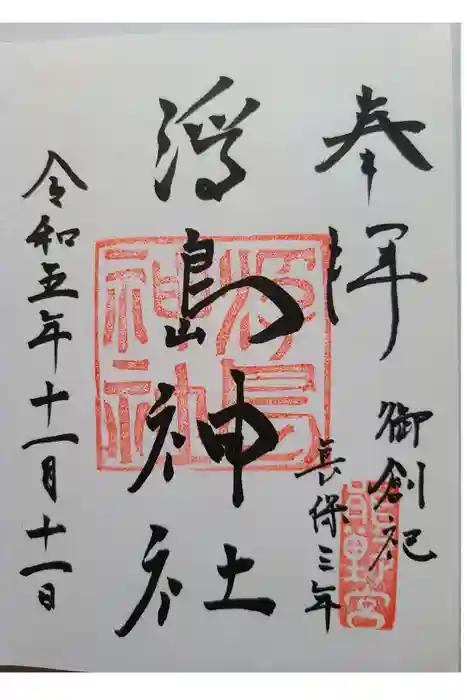 奉拝
御創祀
長保三年
浮島神社
浮島
神社
令和五年十一月十一日